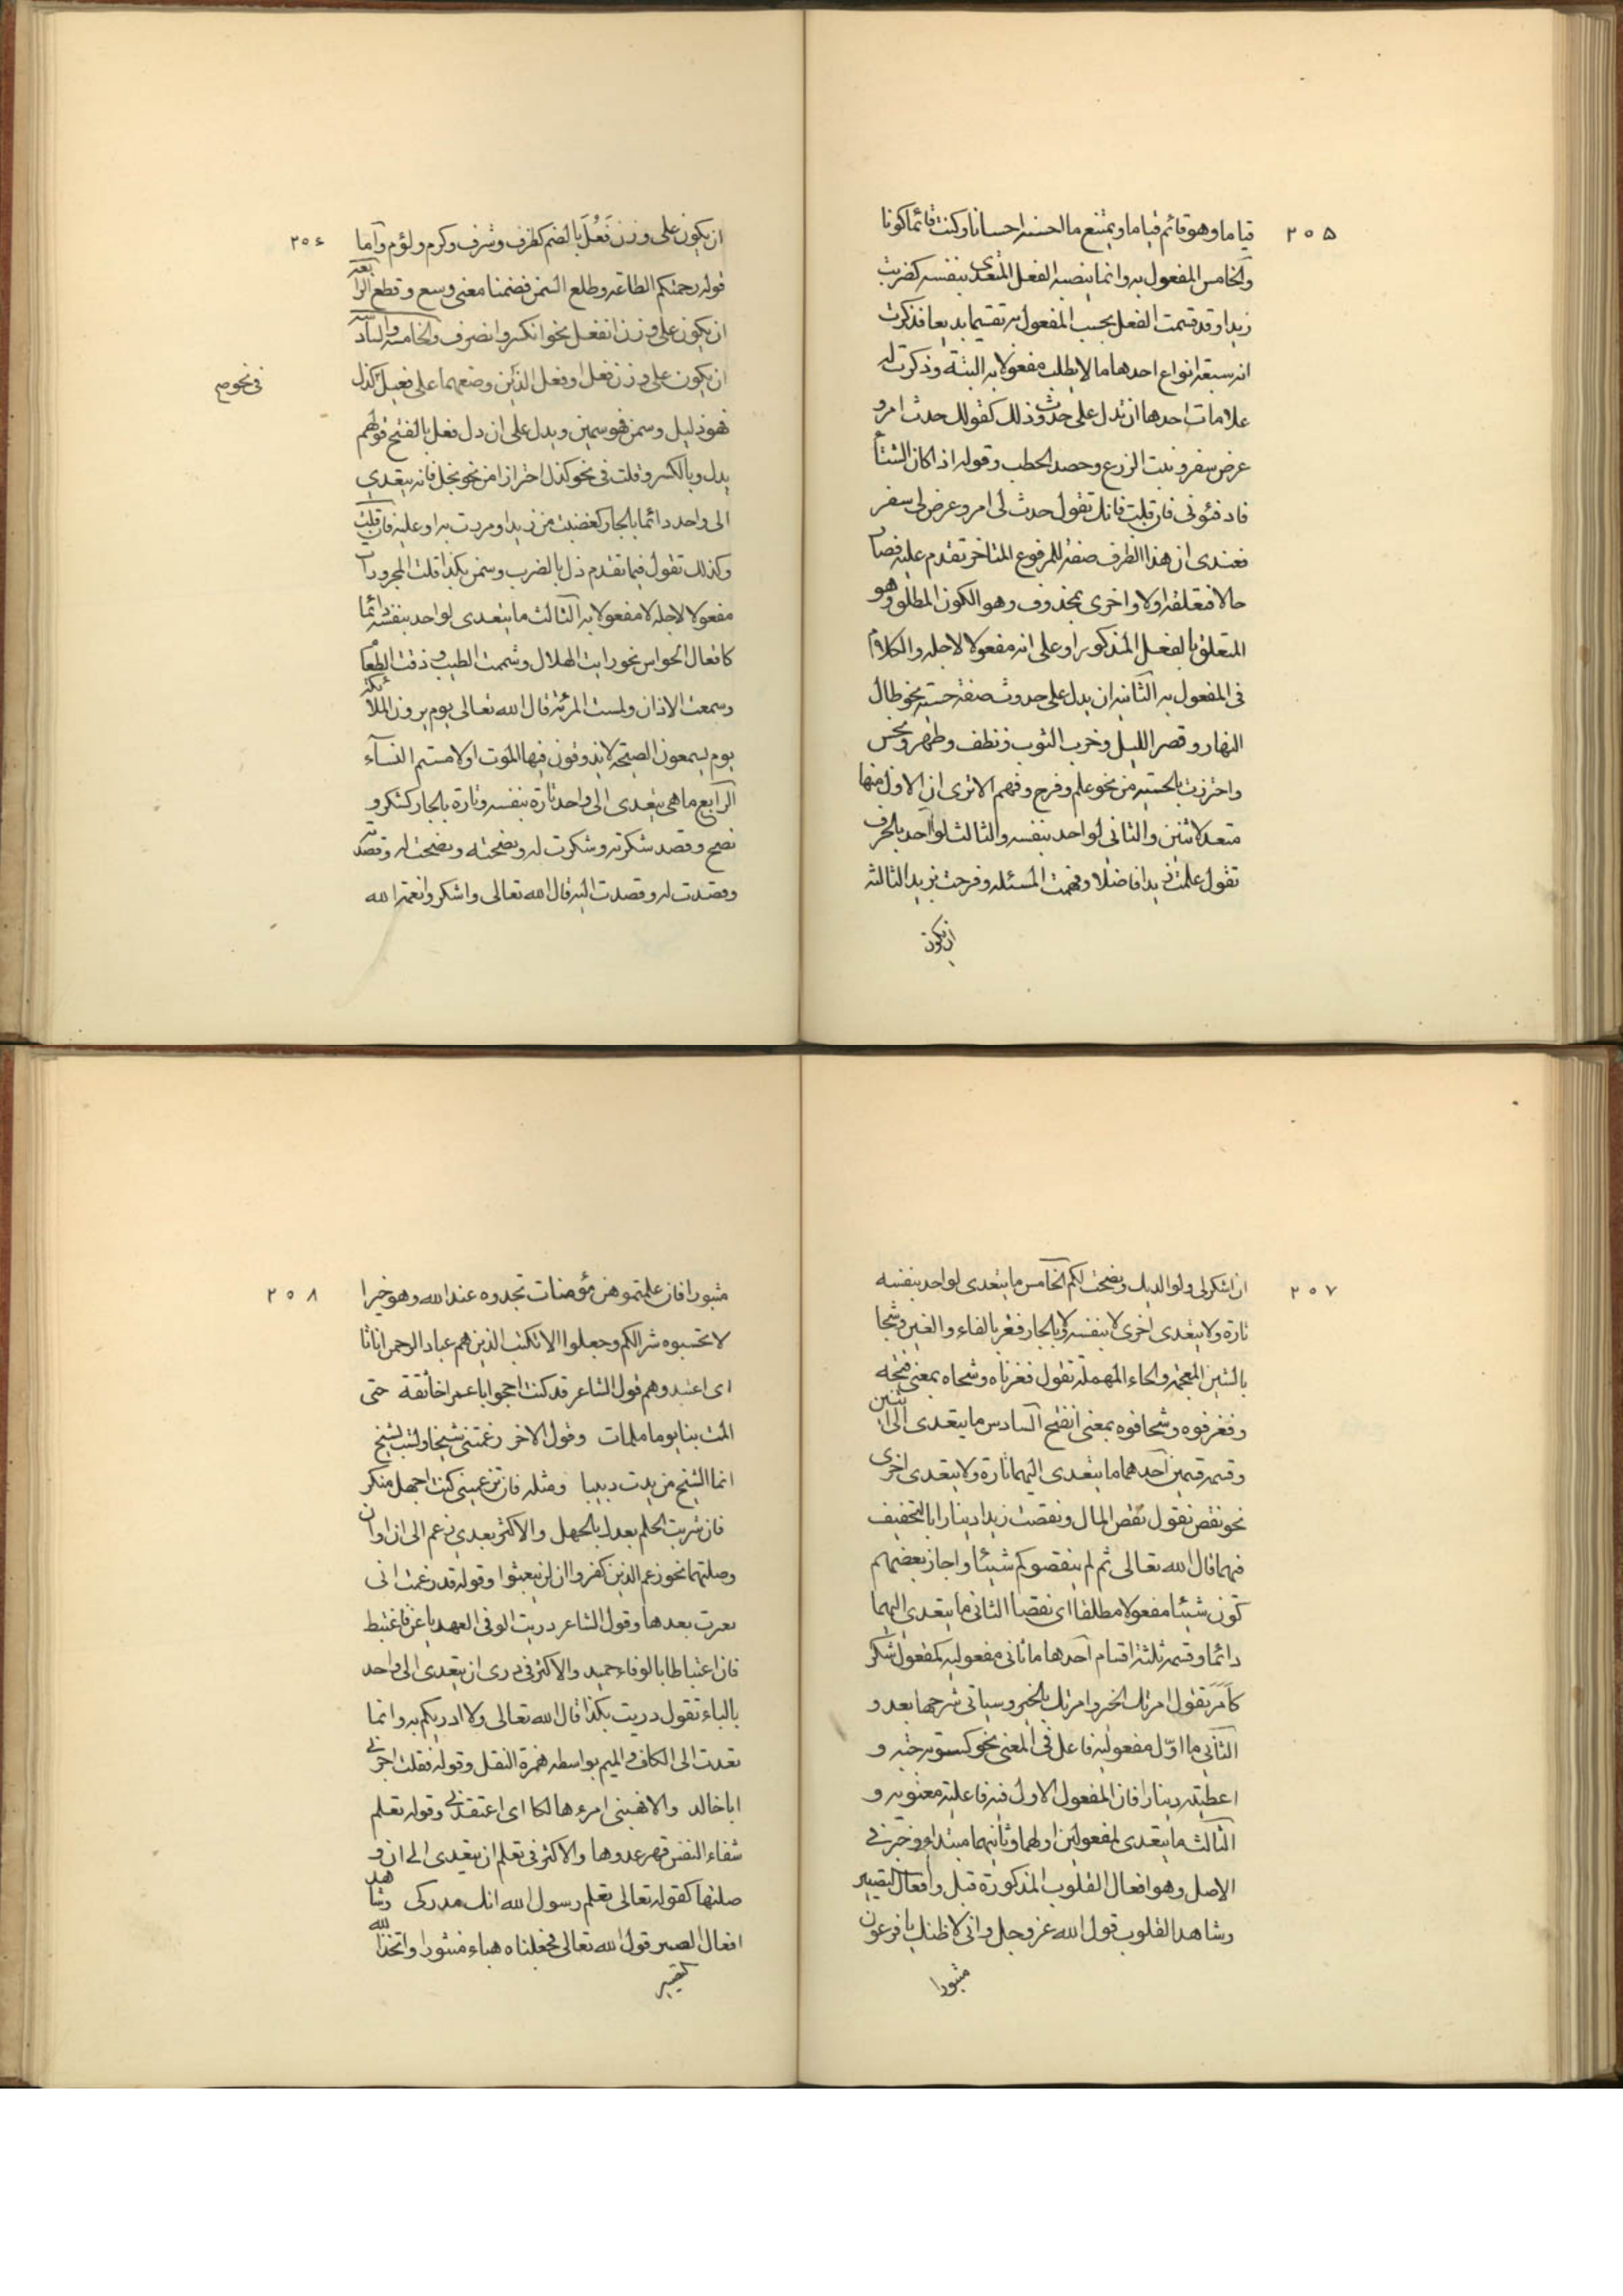 ٢٠٥
قياما وهو قائم قياما ويمتنع ما احسنه احسانا وكنت قائما كونا
والخامس المفعول به وانما ينصبه الفعل المتعدى بنفسه كضربت
زيدا وقد قسمت الفعل بحسب المفعول به تقسيما بديعا فذكرت
انه سبعة انواع احدها ما لا يطلب مفعولا به البتة وذكرت له
علامات احدها ان يدل على حدوث ذلك كقولك حدث امر و
عرض سفر ونبت الزرع وحصد الحطب وقوله اذا كان الشتاء
فادفئونى فان قلت فانك تقول حدث لى امر وعرض لى سفر
فعندى ان هذا الظرف صفة للمرفوع المتاخر تقدم عليه فصار
حالا فتعلقه اولا واخرى بمحذوف وهو الكون المطلق وهو
المتعلق بالفعل المذكور او على انه مفعولا لاجله والكلام
فى المفعول به الثانيه ان يدل على حدوث صفة حسيه نحو طال
النهار وقصر الليل وخرب الثوب ونظف وطهر ونجس
واحترزت بالحسيه من نحو علم وفرح وفهم الا ترى ان الاول منها
متعد لاثنين والثانى لواحد بنفسه والثالث لواحد بالحرف
تقول علمت زيدا فاضلا وفهمت المسئله وفرحت بزيد الثالثه
ان يكون
٢٠٦
ان يكون على وزن فَعُلَ بالضم كظرف وشرف وكرم ولؤم واما
قوله رحبتكم الطاعه وطلع اليمن فضمنا معنى وسع وقطع الرابعه
ان يكون على وزن انفعل نحو انكسر وانصرف والخامسه والسادسه
ان يكون على وزن فعل او فعل الذين وصفهما على فعيل كذل
فى نحو صح
فهو ذليل وسمن فهو سمين ويدل على ان ذل فعل بالفتح قولهم
يذل وبالكسر وقلت فى نحو كذل احترازا من نحو بخل فانه يتعدى
الى واحد دائما بالجار كغضبت من زيد او مررت به او عليه فان قلت
وكذلك تقول فيما تقدم ذل بالضرب وسمن بكذا قلت المجرورات
مفعولا لاجله لا مفعولا به الثالث ما يتعدى لواحد بنفسه دائما
كافعال الحواس نحو رايت الهلال وشممت الطيب وذقت الطعام
وسمعت الاذان ولمست المرئة قال الله تعالى يوم يرون الملائكة
يوم يسمعون الصيحة لا يذوقون فيها الموت اولامستم النسآء
الرابع ما هى يتعدى الى واحد تارة بنفسه وتارة بالجار كشكر و
نصح وقصد شكرته وشكرت له ونصحته ونصحت له وقصدته
وقصدت له وقصدت اليه قال الله تعالى واشكروا نعمة الله
٢٠٧
ان اشكر لى ولوالديك ونصحت لكم الخامس ما يتعدى لواحد بنفسه
تارة ولا يتعدى اخرى لا بنفسه ولا بالجار فغر بالفاء والغين وشحا
بالشين المعجمه والحاء المهملة تقول فغر فاه وشحاه بمعنى فتحه
وفغر فوه وشحا فوه بمعنى انفتح السادس ما يتعدى الى اثنين
وقسمه قسمين احدهما ما يتعدى اليهما تارة ولا يتعدى اخرى
نحو نقص تقول نقص المال ونقصت زيدا دينارا بالتخفيف
فيهما قال الله تعالى ثم لم ينقصوكم شيئا واجاز بعضهم
كون شيئا مفعولا مطلقا اى نقصا الثانى ما يتعدى اليهما
دائما وقسمه ثلثة اقسام احدها ما ثانى مفعوليه كمفعول شكر
كَاَمَرَ تقول امرتك الخير وامرتك بالخير وسياتى شرحها بعد و
الثانى ما اوّل مفعوليه فاعل فى المعنى نحو كسوته جبه و
اعطيته دينارا فان المفعول الاول فيه فاعلية معنويه و
الثالث ما يتعدى لمفعولين اولهما وثانيهما مبتداء وخبر فى
الاصل وهو افعال القلوب المذكورة قبل وافعال التصيير
وشاهد القلوب قول الله عز وجل وانى لاظنك يا فرعون
مثبورا
٢٠٨
مثبورا فان علمتموهن مؤمنات تجدوه عند الله وهو خيرا
لا تحسبوه شرا لكم وجعلوا الملائكة الذين هم عباد الرحمن اناثا
اى اعتقدوهم قول الشاعر قد كنت احجوا ابا عمر اخا ثقة حتى
المت بنا يوما ملمات وقول الاخر زعمتنى شيخا ولست بشيخ
انما الشيخ من يدب دبيبا ومثله فان تزعمينى كنت اجهل منكم
فان شريت الحلم بعدك بالجهل والاكثر تعدى زعم الى ان او ان
وصلتهما نحو زعم الذين كفروا ان لن يبعثوا وقوله قد زعمت انى
تغيرت بعدها وقول الشاعر دريت الوفى العهد يا عرو فاغتبط
فان اغتباطا بالوفاء حميد والاكثر فى درى ان يتعدى الى واحد
بالباء تقول دريت بكذا قال الله تعالى ولا ادريكم به وانما
تعدت الى الكاف والميم بواسطه همزة النقل وقوله فقلت اجرنى
ابا خالد والا فهبنى امرء هالكا اى اعتقدنى وقوله تعلم
شفاء النفس قهر عدوها والاكثر فى تعلم ان يتعدى الى ان و
صلتها كقوله تعالى تعلم رسول الله انك مدركى وشاهد
افعال التصيير قول الله تعالى فجعلناه هباء منثورا واتخذ الله
تصيير